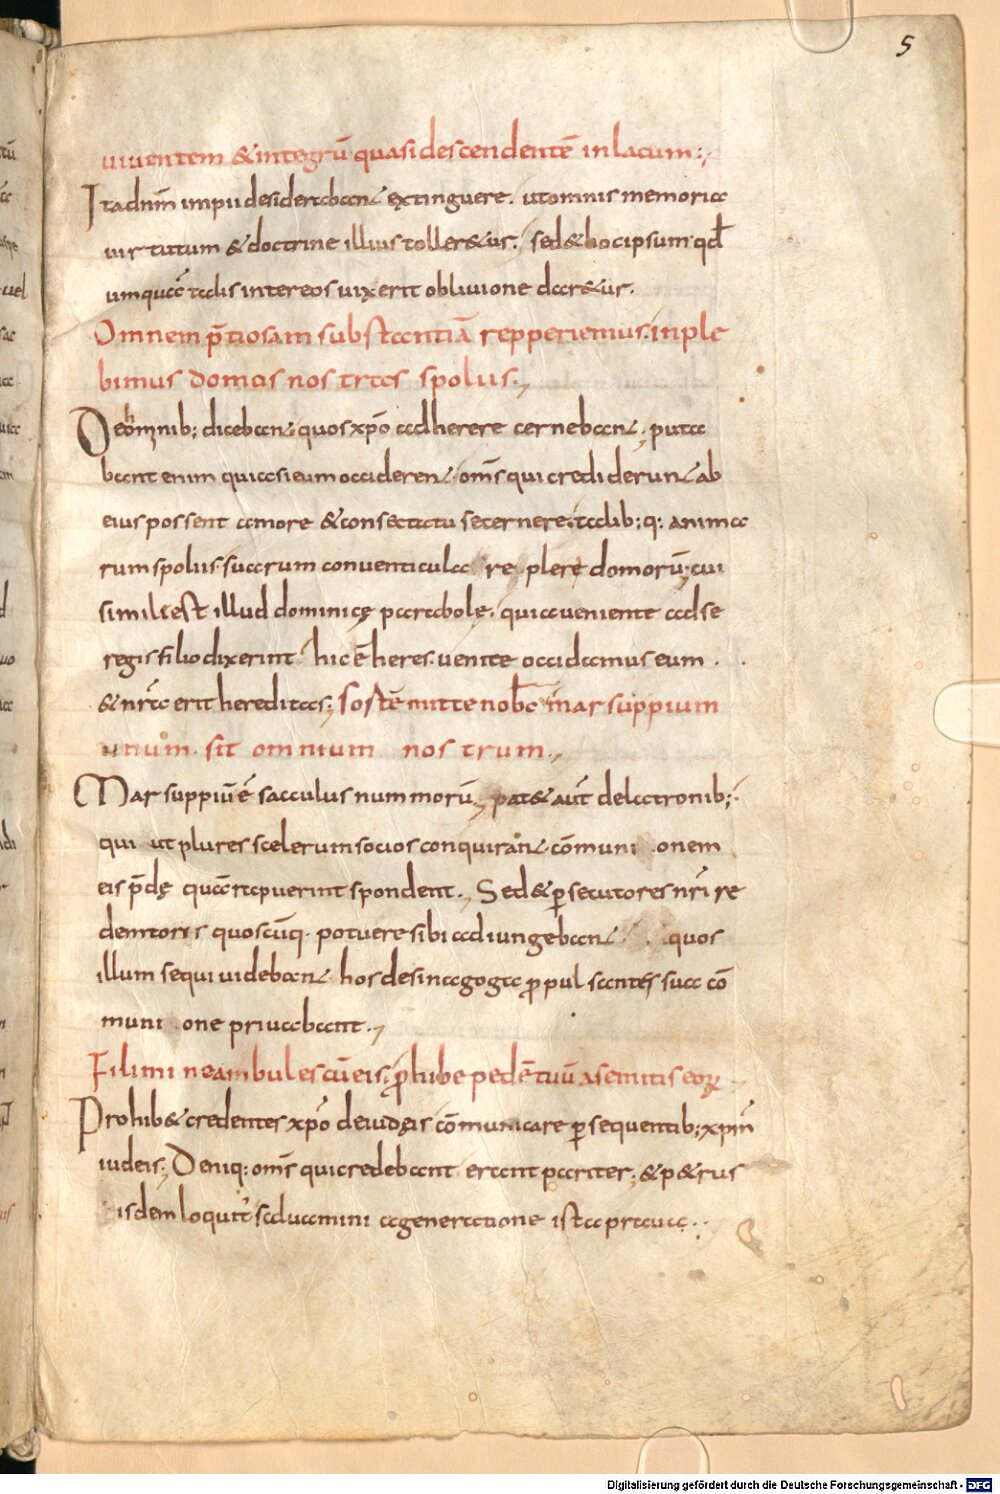 5
uiuentem & integrū quasi descendentē in lacum;
Ita dn̄m impii desiderabant extinguere. ut omnis memoria
uirtutum & doctrine illius toller&ur; sed & hoc ipsum qđ
umquā talis inter eos uixerit obliuione dar&ur.
Omnem p̄tiosam substantiā repperiemus. inple
bimus domos nostras spoliis;
De omnib; dicebant quos xp̄o adherere cernebant; puta
bant enim quia si eum occiderent om̄s qui crediderunt ab
eius possent amore & consectatu secernere. talib; q: anima
rum spoliis suarum conuenticula replere domorū; cui
simile est illud dominicę parabolę. quia ueniente ad se
regis filio dixerint hic ē heres. uenite occidamus eum.
& nr̄a erit hereditas; Sortē mitte nob̄c marsuppium
unum. sit omnium nostrum;
Marsuppiū ē sacculus nummorū; pat& aut̄ de latronib;
qui ut plures scelerum socios conquirant cōmuni onem
eis p̄dę quā rapuerint spondent; Sed & ꝑsecutores nr̄i re
demtoris quoscūq. potuere sibi adiungebant quos
illum sequi uidebant hos de sinagoga ꝓpulsantes sua cō
muni one priuabant;
Fili mi ne ambules cū eis. ꝓhibe pedē tuū a semitis eoꝝ
Prohib& credentes xp̄o de iudęis cōmunicare ꝑsequentib; xp̄m
iudeis; Deniq: om̄s qui credebant erant pariter; & p&rus
isdem loquit̄ saluamini a generatione ista praua;
Digitalisierung gefördert durch die Deutsche Forschungsgemeinschaft - DFG